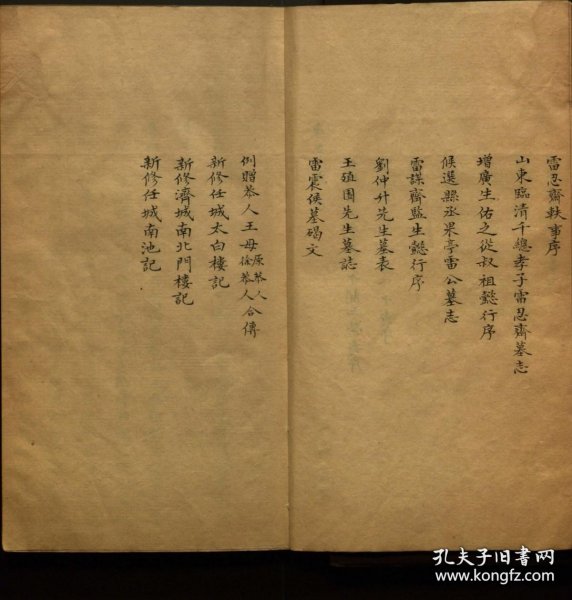 雷忍齋軼事序
山東臨清千總孝子雷忍齋墓志
增廣生佑之從叔祖懿行序
候選縣丞果亭雷公墓志
雷謀齋監生懿行序
劉仲升先生墓表
王殖圃先生墓誌
雷震侯墓碣文
例贈恭人王母原恭人徐恭人合傳
新修任城太白樓記
新修濟城南北門樓記
新修任城南池記
孔夫子旧书网
www.kongfz.com